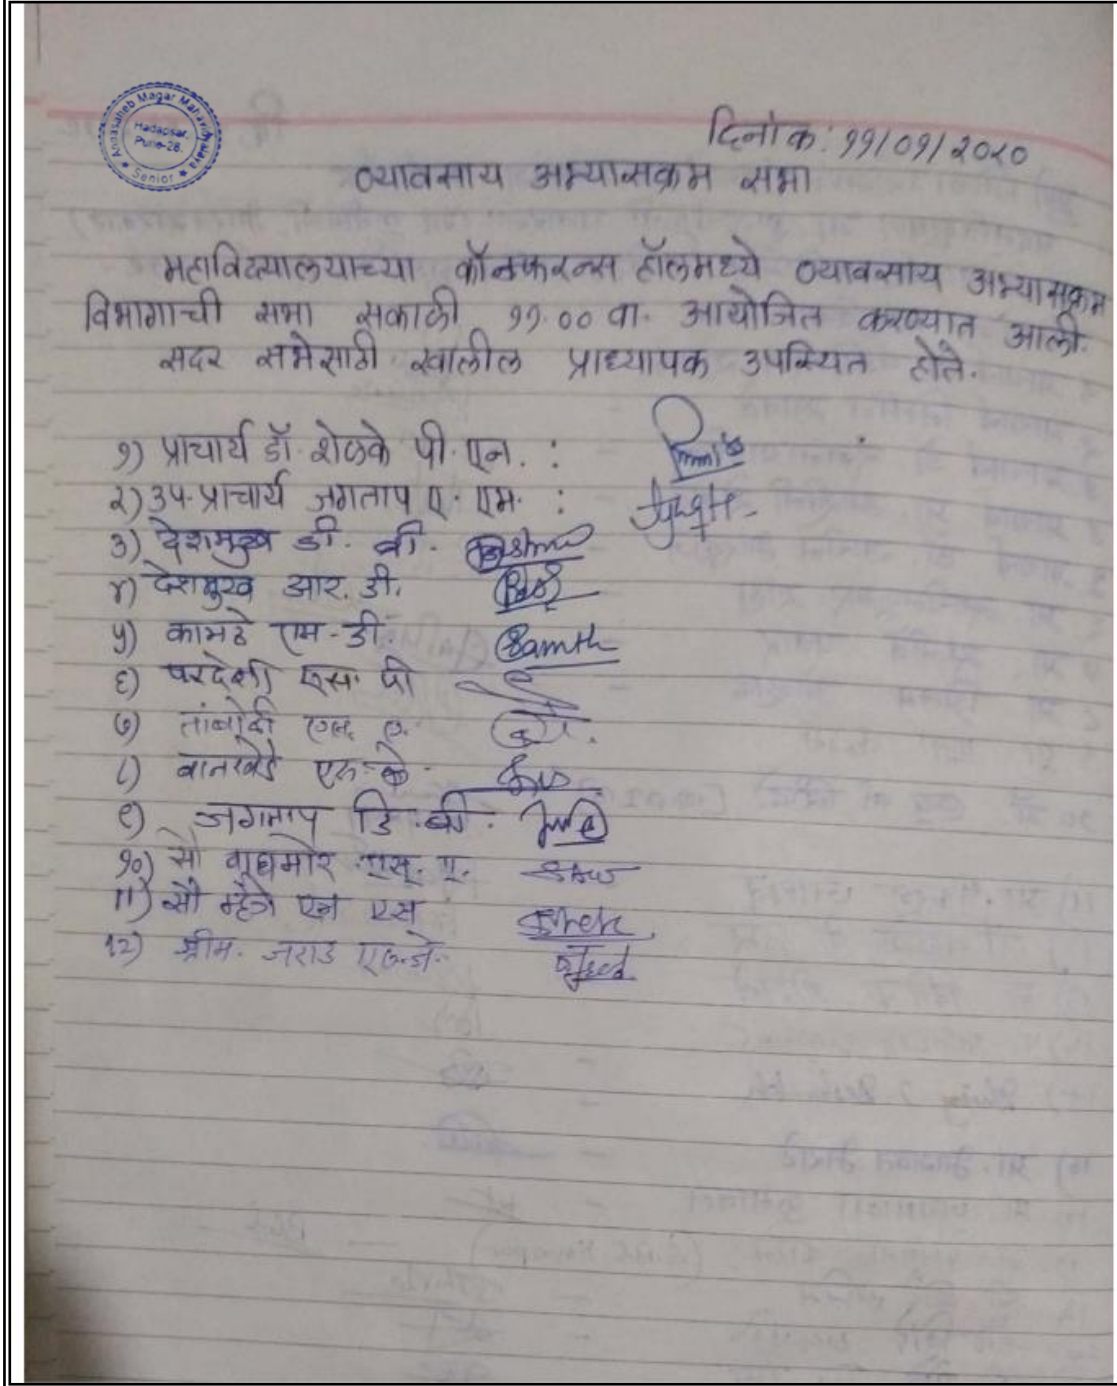 Annasaheb Magar Mahavidyalaya
Hadapsar,
Pune-28.
★ Senior ★
दिनांक: ११/०१/२०२०
व्यावसाय अभ्यासक्रम सभा
महाविद्यालयाच्या कॉनफरन्स हॉलमध्ये व्यावसाय अभ्यासक्रम
विभागाची सभा सकाळी ११.०० वा. आयोजित करण्यात आली.
सदर सभेसाठी खालील प्राध्यापक उपस्थित होते.
१) प्राचार्य डॉ. शेळके पी. एन. :
२) उप-प्राचार्य जगताप ए. एम. :
३) देशमुख डी. बी.
४) देशमुख आर. डी.
५) कामठे एम. डी.
६) परदेशी एस. पी
७) तांबोळी ए.
८) वानखेडे एस. के.
९) जगताप डि. बी.
१०) सौ वाघमोरे एस. ए.
11) सौ म्हेत्रे एन एस
१२) श्रीम. जराड एच. जे.